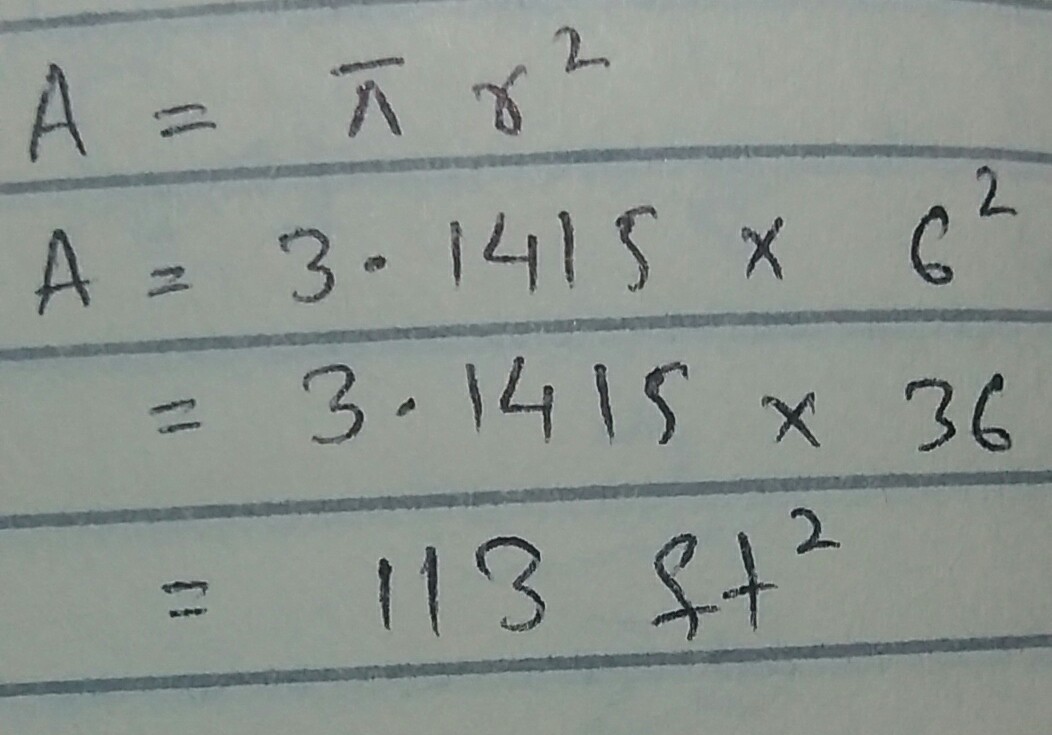 A = π r²
A = 3.1415 x 6²
= 3.1415 x 36
= 113 ft²